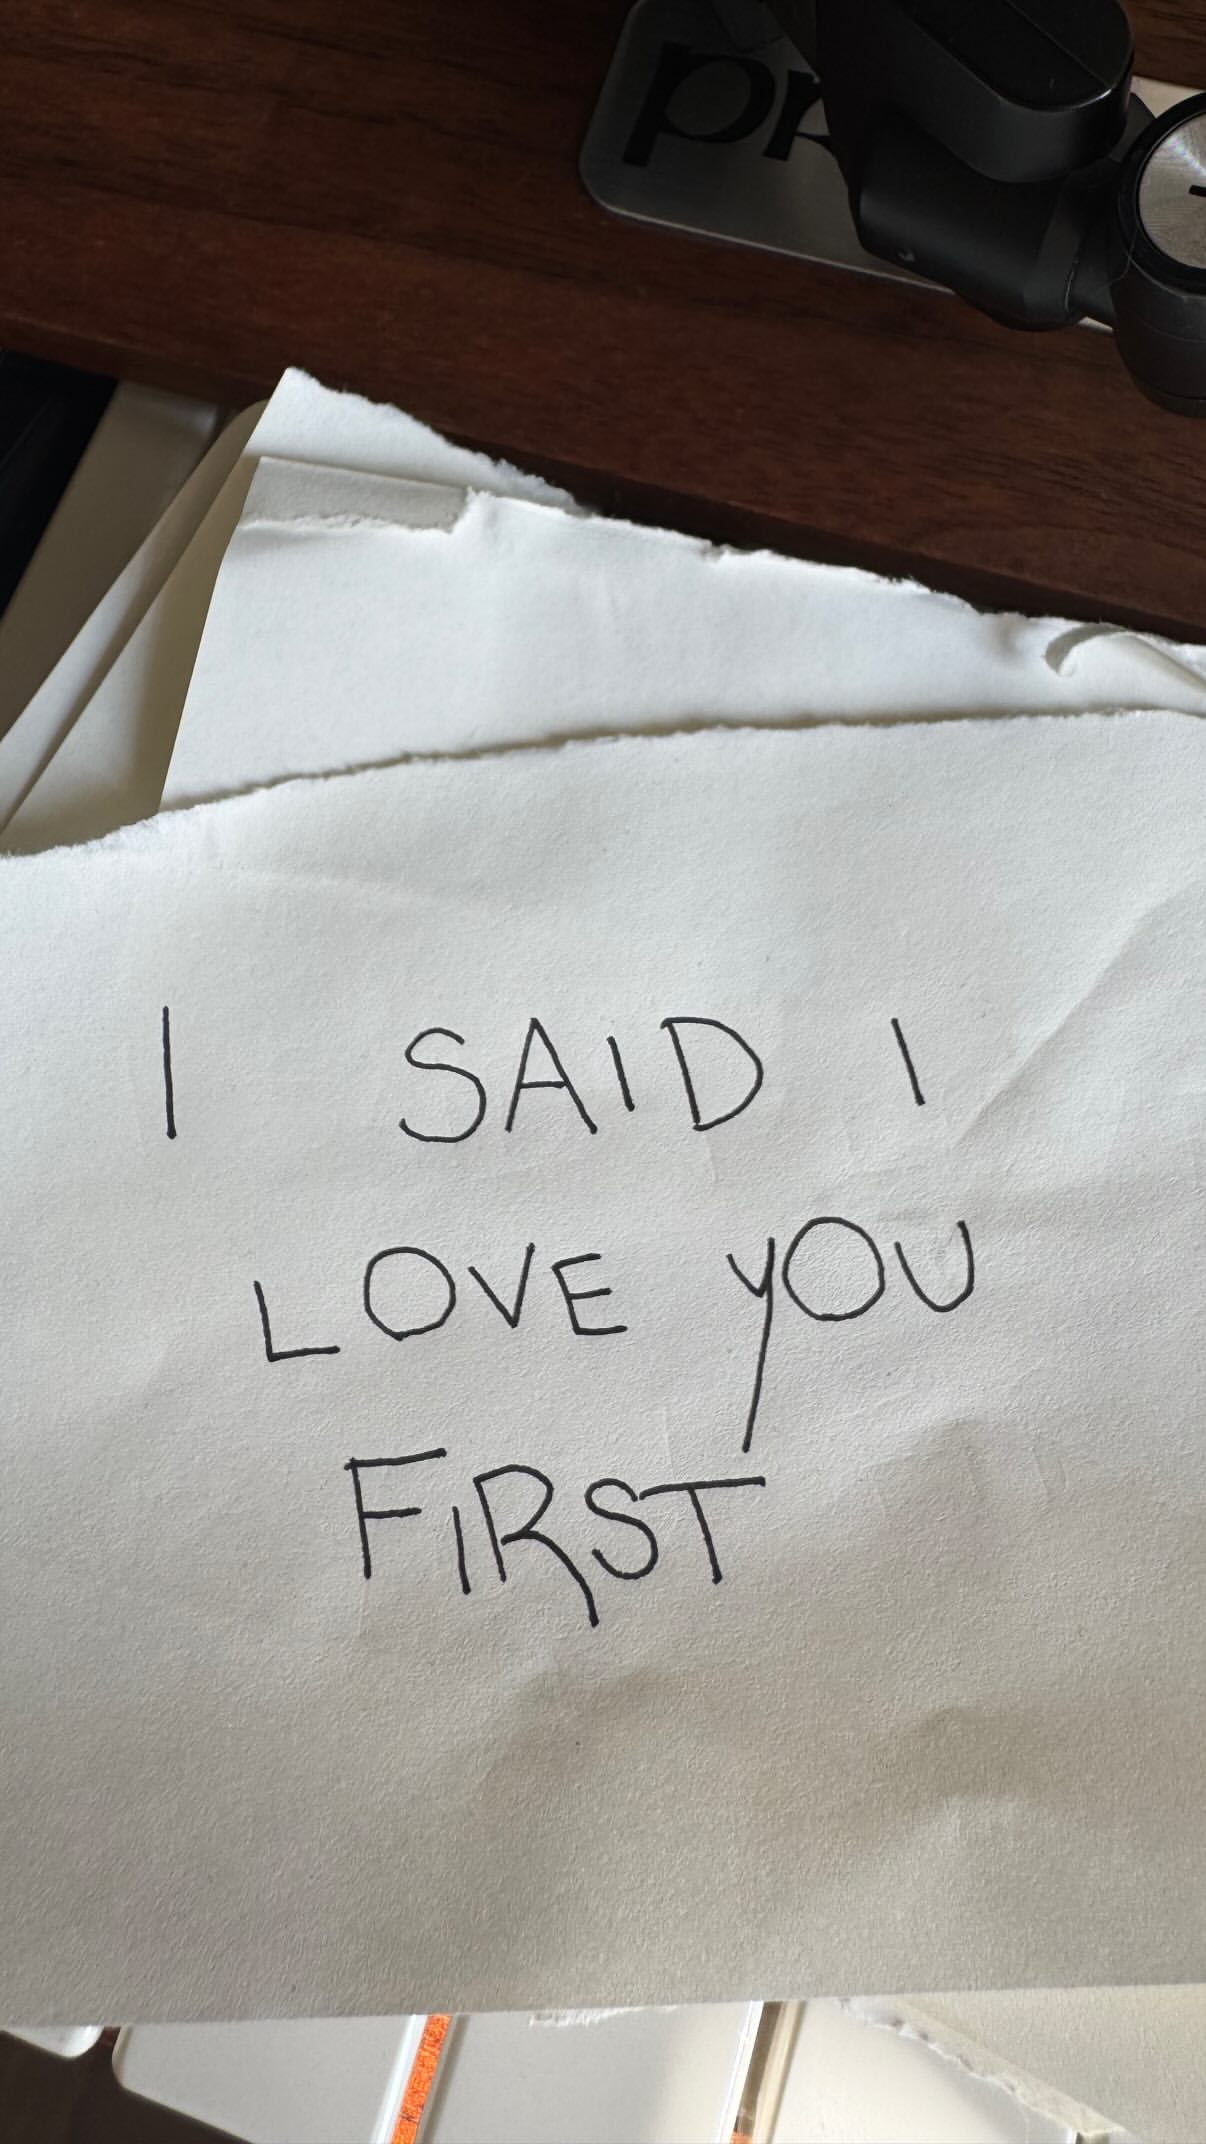 pr
I SAID I
LOVE YOU
FIRST